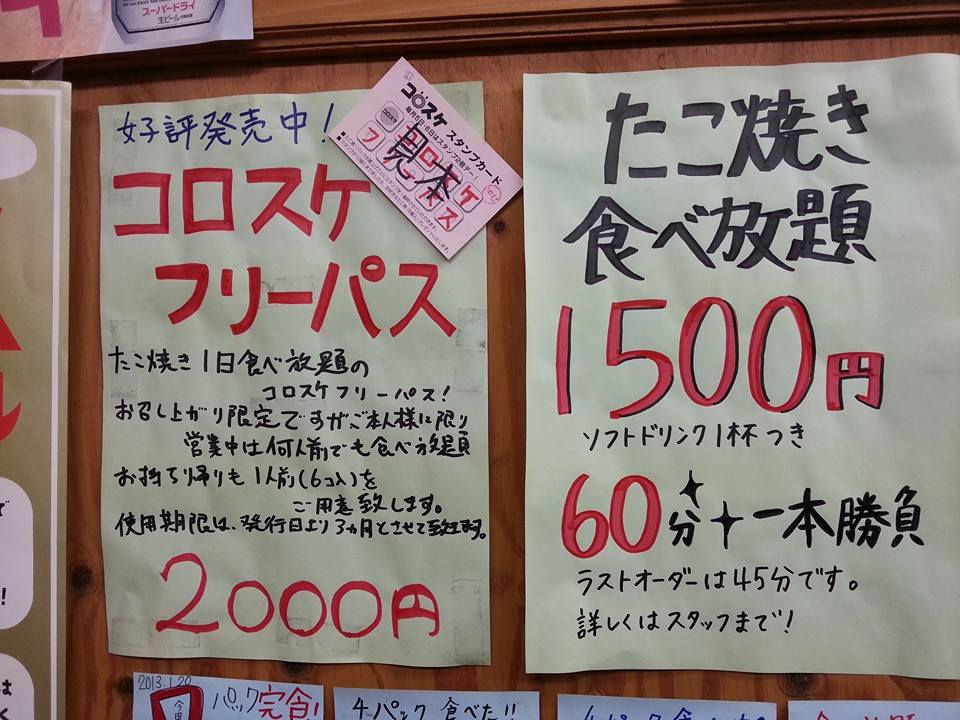 スーパードライ
生ビール
好評発売中!
コロスケ
フリーパス
たこ焼き1日食べ放題の
コロスケフリーパス!
お召し上がり限定ですがご本人様に限り
営業中は何人前でも食べ放題
お持ち帰りも1人前(6コ入)を
ご用意致します。
使用期限は、発行日より3ヵ月とさせて致します。
2000円
コロスケ スタンプカード
毎月5日・6日はスタンプ2倍デー!
見本
たこ焼き
食べ放題
1500円
ソフトドリンク1杯つき
60分一本勝負
ラストオーダーは45分です。
詳しくはスタッフまで!
2013.1.20
パック完食!
4パック 食べた!!